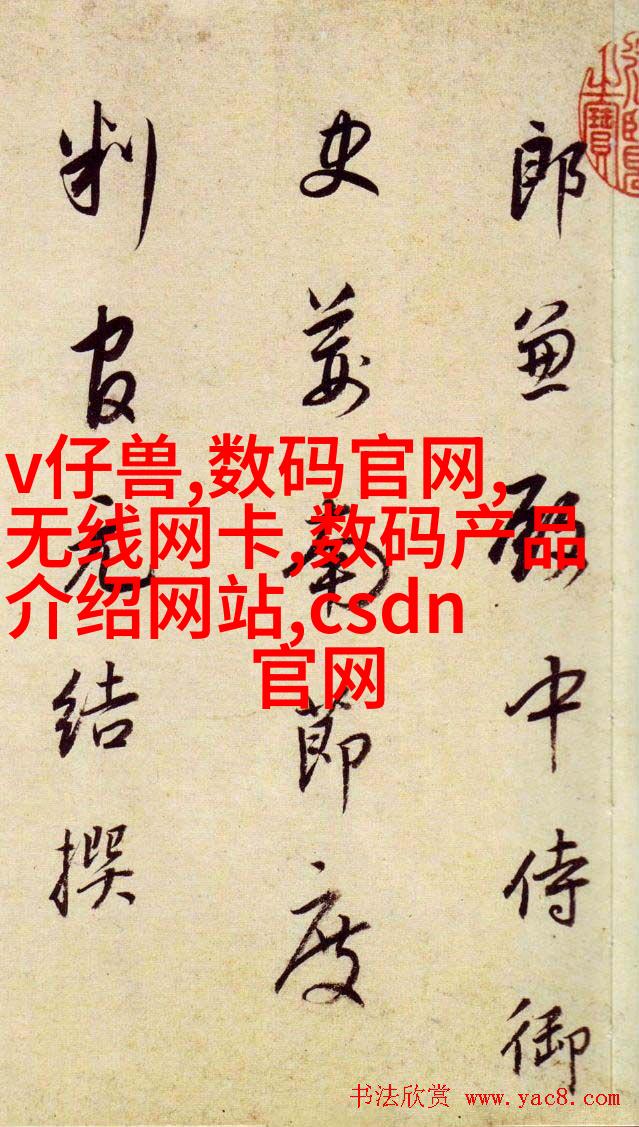 郎兼殿中侍御
史荊南節度
判官元結撰
v仔兽,数码官网,
无线网卡,数码产品
介绍网站,csdn
官网
书法欣赏 www.yac8.com